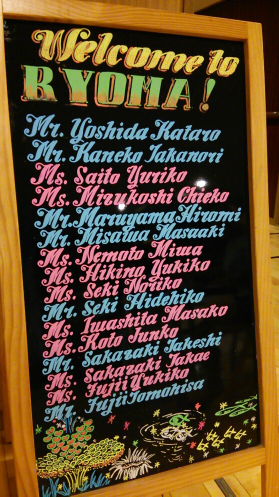 Welcome to
RYOMA!
Mr. Yoshida Kataro
Mr. Kaneko Takanori
Ms. Saito Yuriko
Ms. Mizukoshi Chieko
Mr. Maruyama Hiromi
Mr. Misawa Masaaki
Ms. Nemoto Miwa
Ms. Hikino Yukiko
Ms. Seki Noriko
Mr. Seki Hidehiko
Ms. Iwashita Masako
Ms. Koto Junko
Mr. Sakazaki Takeshi
Ms. Sakazaki Takae
Ms. Fujii Yukiko
Mr. Fujii Tomohisa